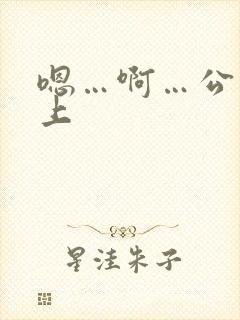 嗯…啊…公
上
星洼朱子